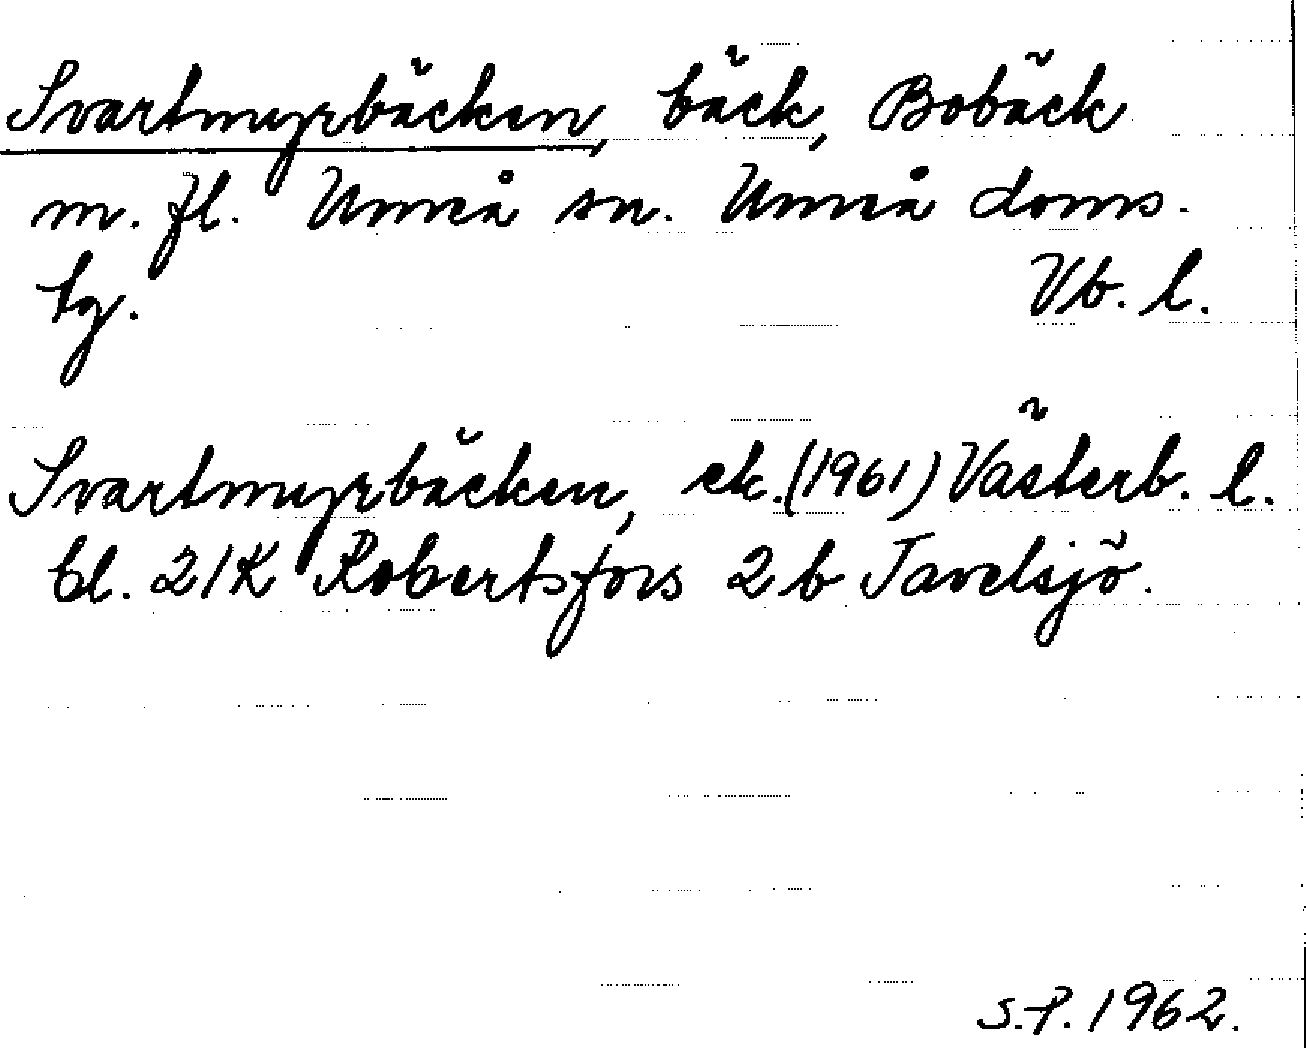 Svartmyrbäcken, bäck, Bobäck
m. fl. Umeå sn. Umeå doms.
tg. Vb. l.
Svartmyrbäcken, ek. (1961) Västerb. l.
bl. 21K Robertsfors 2 b Tavelsjö.
S.P. 1962.